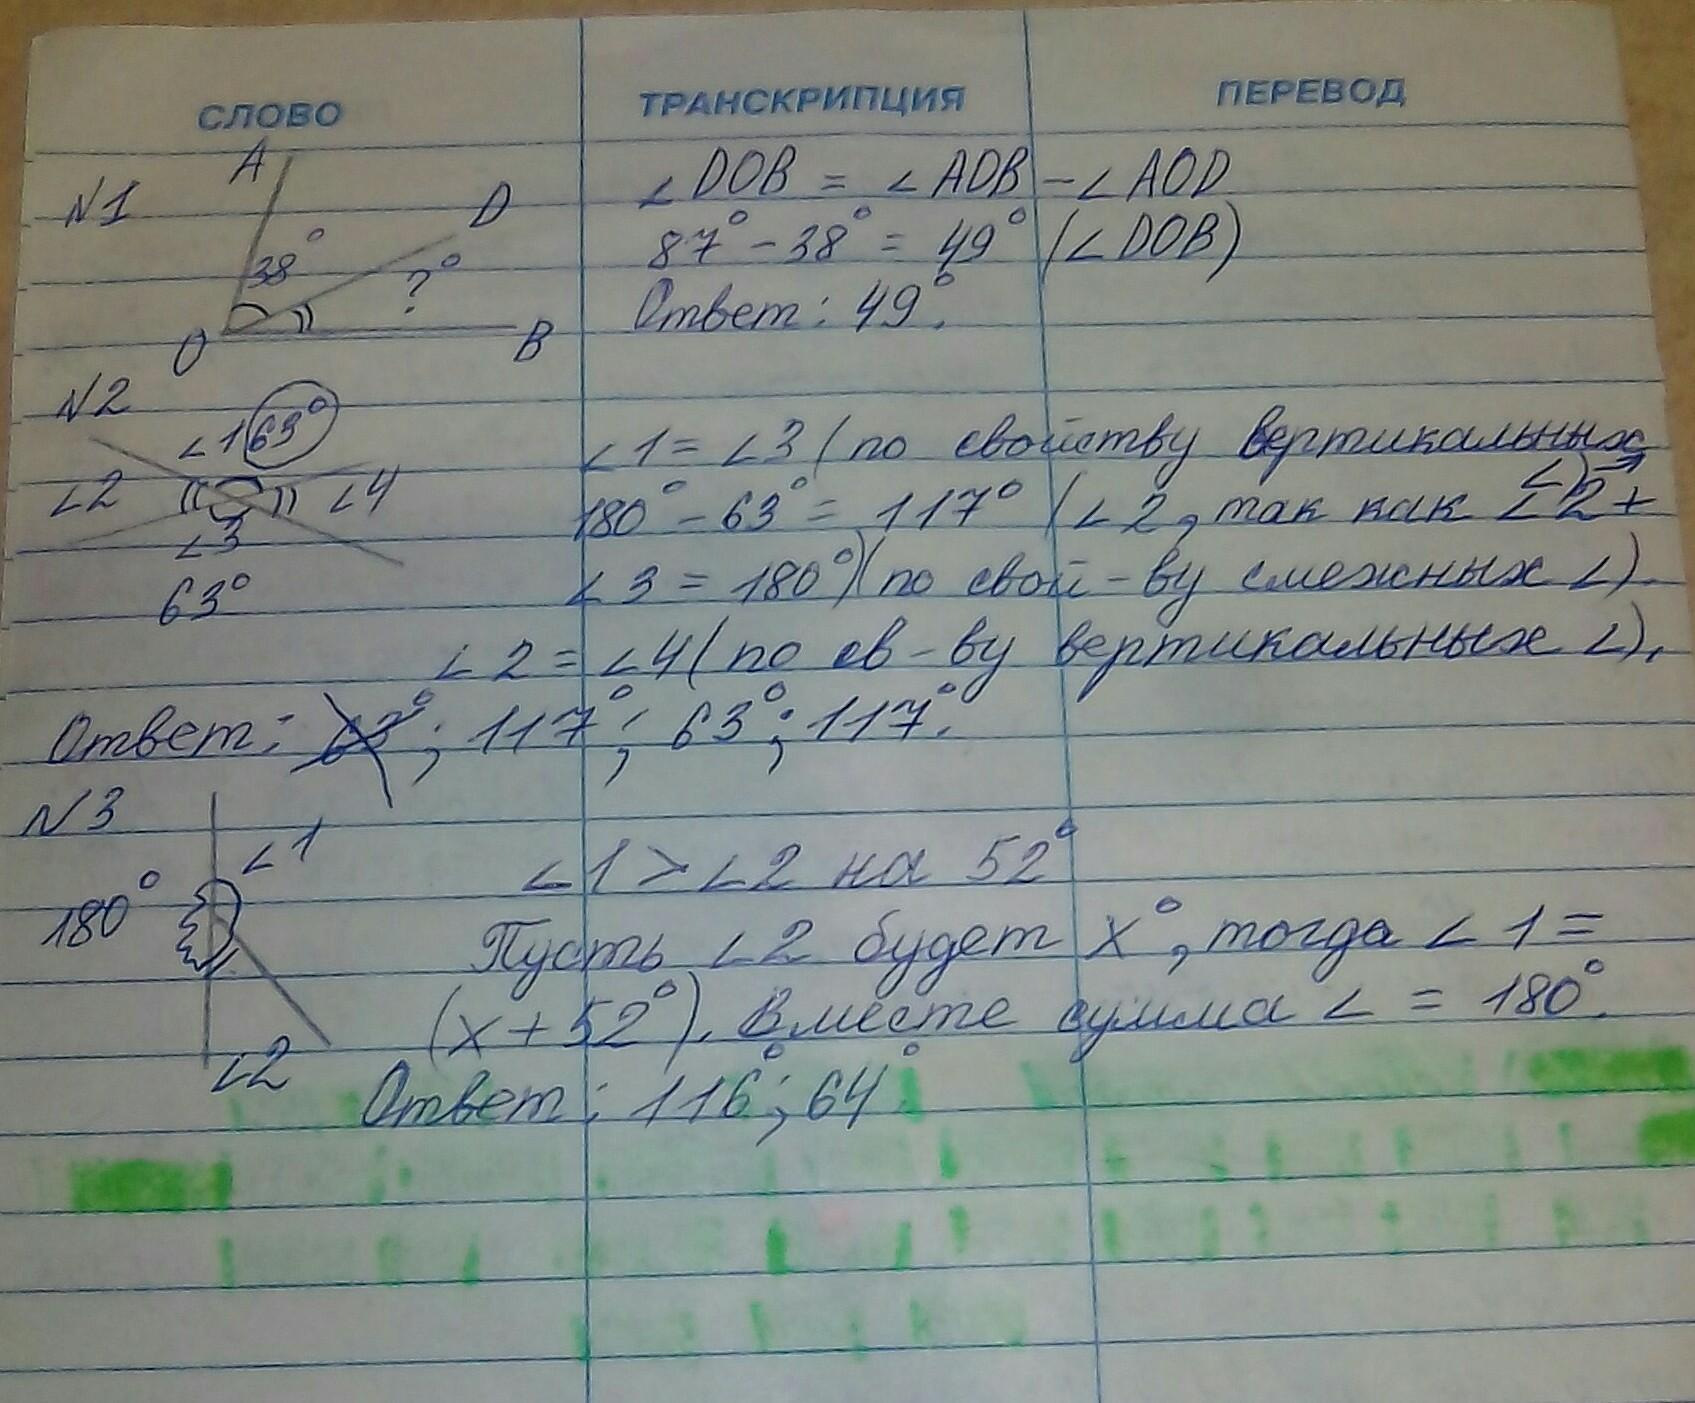 СЛОВО ТРАНСКРИПЦИЯ ПЕРЕВОД
N1
A
D
38°
?°
O
B
∠DOB = ∠ADB - ∠AOD
87° - 38° = 49° (∠DOB)
Ответ: 49°.
N2
∠1 63°
∠2
∠4
∠3
63°
∠1 = ∠3 (по свойству вертикальных ∠) →
180° - 63° = 117° (∠2, так как ∠2 +
∠3 = 180°) (по свой-ву смежных ∠).
∠2 = ∠4 (по св-ву вертикальных ∠).
Ответ: 63°; 117°; 63°; 117°.
N3
∠1
180°
∠2
∠1 > ∠2 на 52°
Пусть ∠2 будет x°, тогда ∠1 =
(x + 52°). Вместе сумма ∠ = 180°.
Ответ: 116°; 64°.